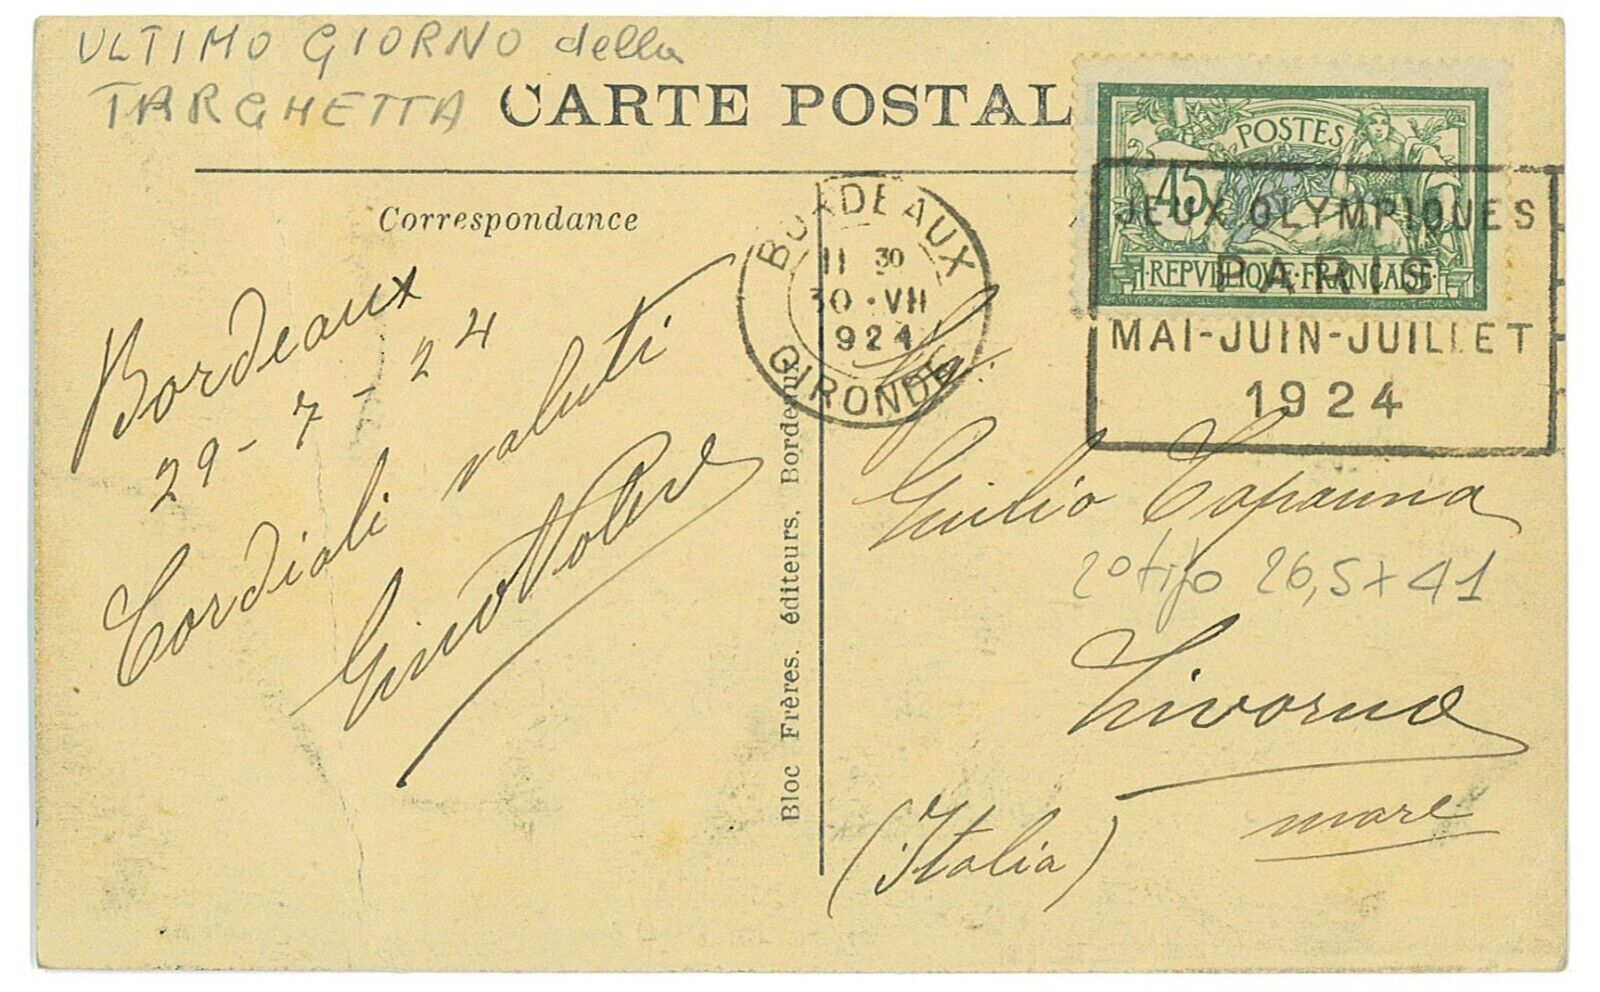 ULTIMO GIORNO della
TARGHETTA
CARTE POSTAL
Correspondance
POSTES
45
REPVBLIQUE FRANÇAISE
BORDEAUX
11 30
30 · VII
924
GIRONDE
JEUX OLYMPIQUES
PARIS
MAI-JUIN-JUILLET
1924
Bordeaux
29-7-24
Cordiali saluti
Gino
Bloc Frères. éditeurs. Bordeaux
Sig.
Giulio Capanna
2º tipo 26,5 x 41
Livorno
mare
(Italia)